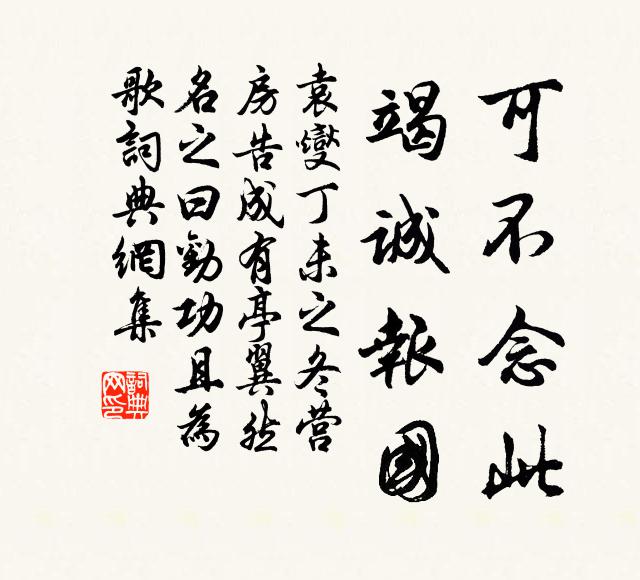 可不念此
竭诚報國
袁燮丁未之冬营
房告成有亭翼然
名之曰勸功且為
歌詞典網集
詞典
网印